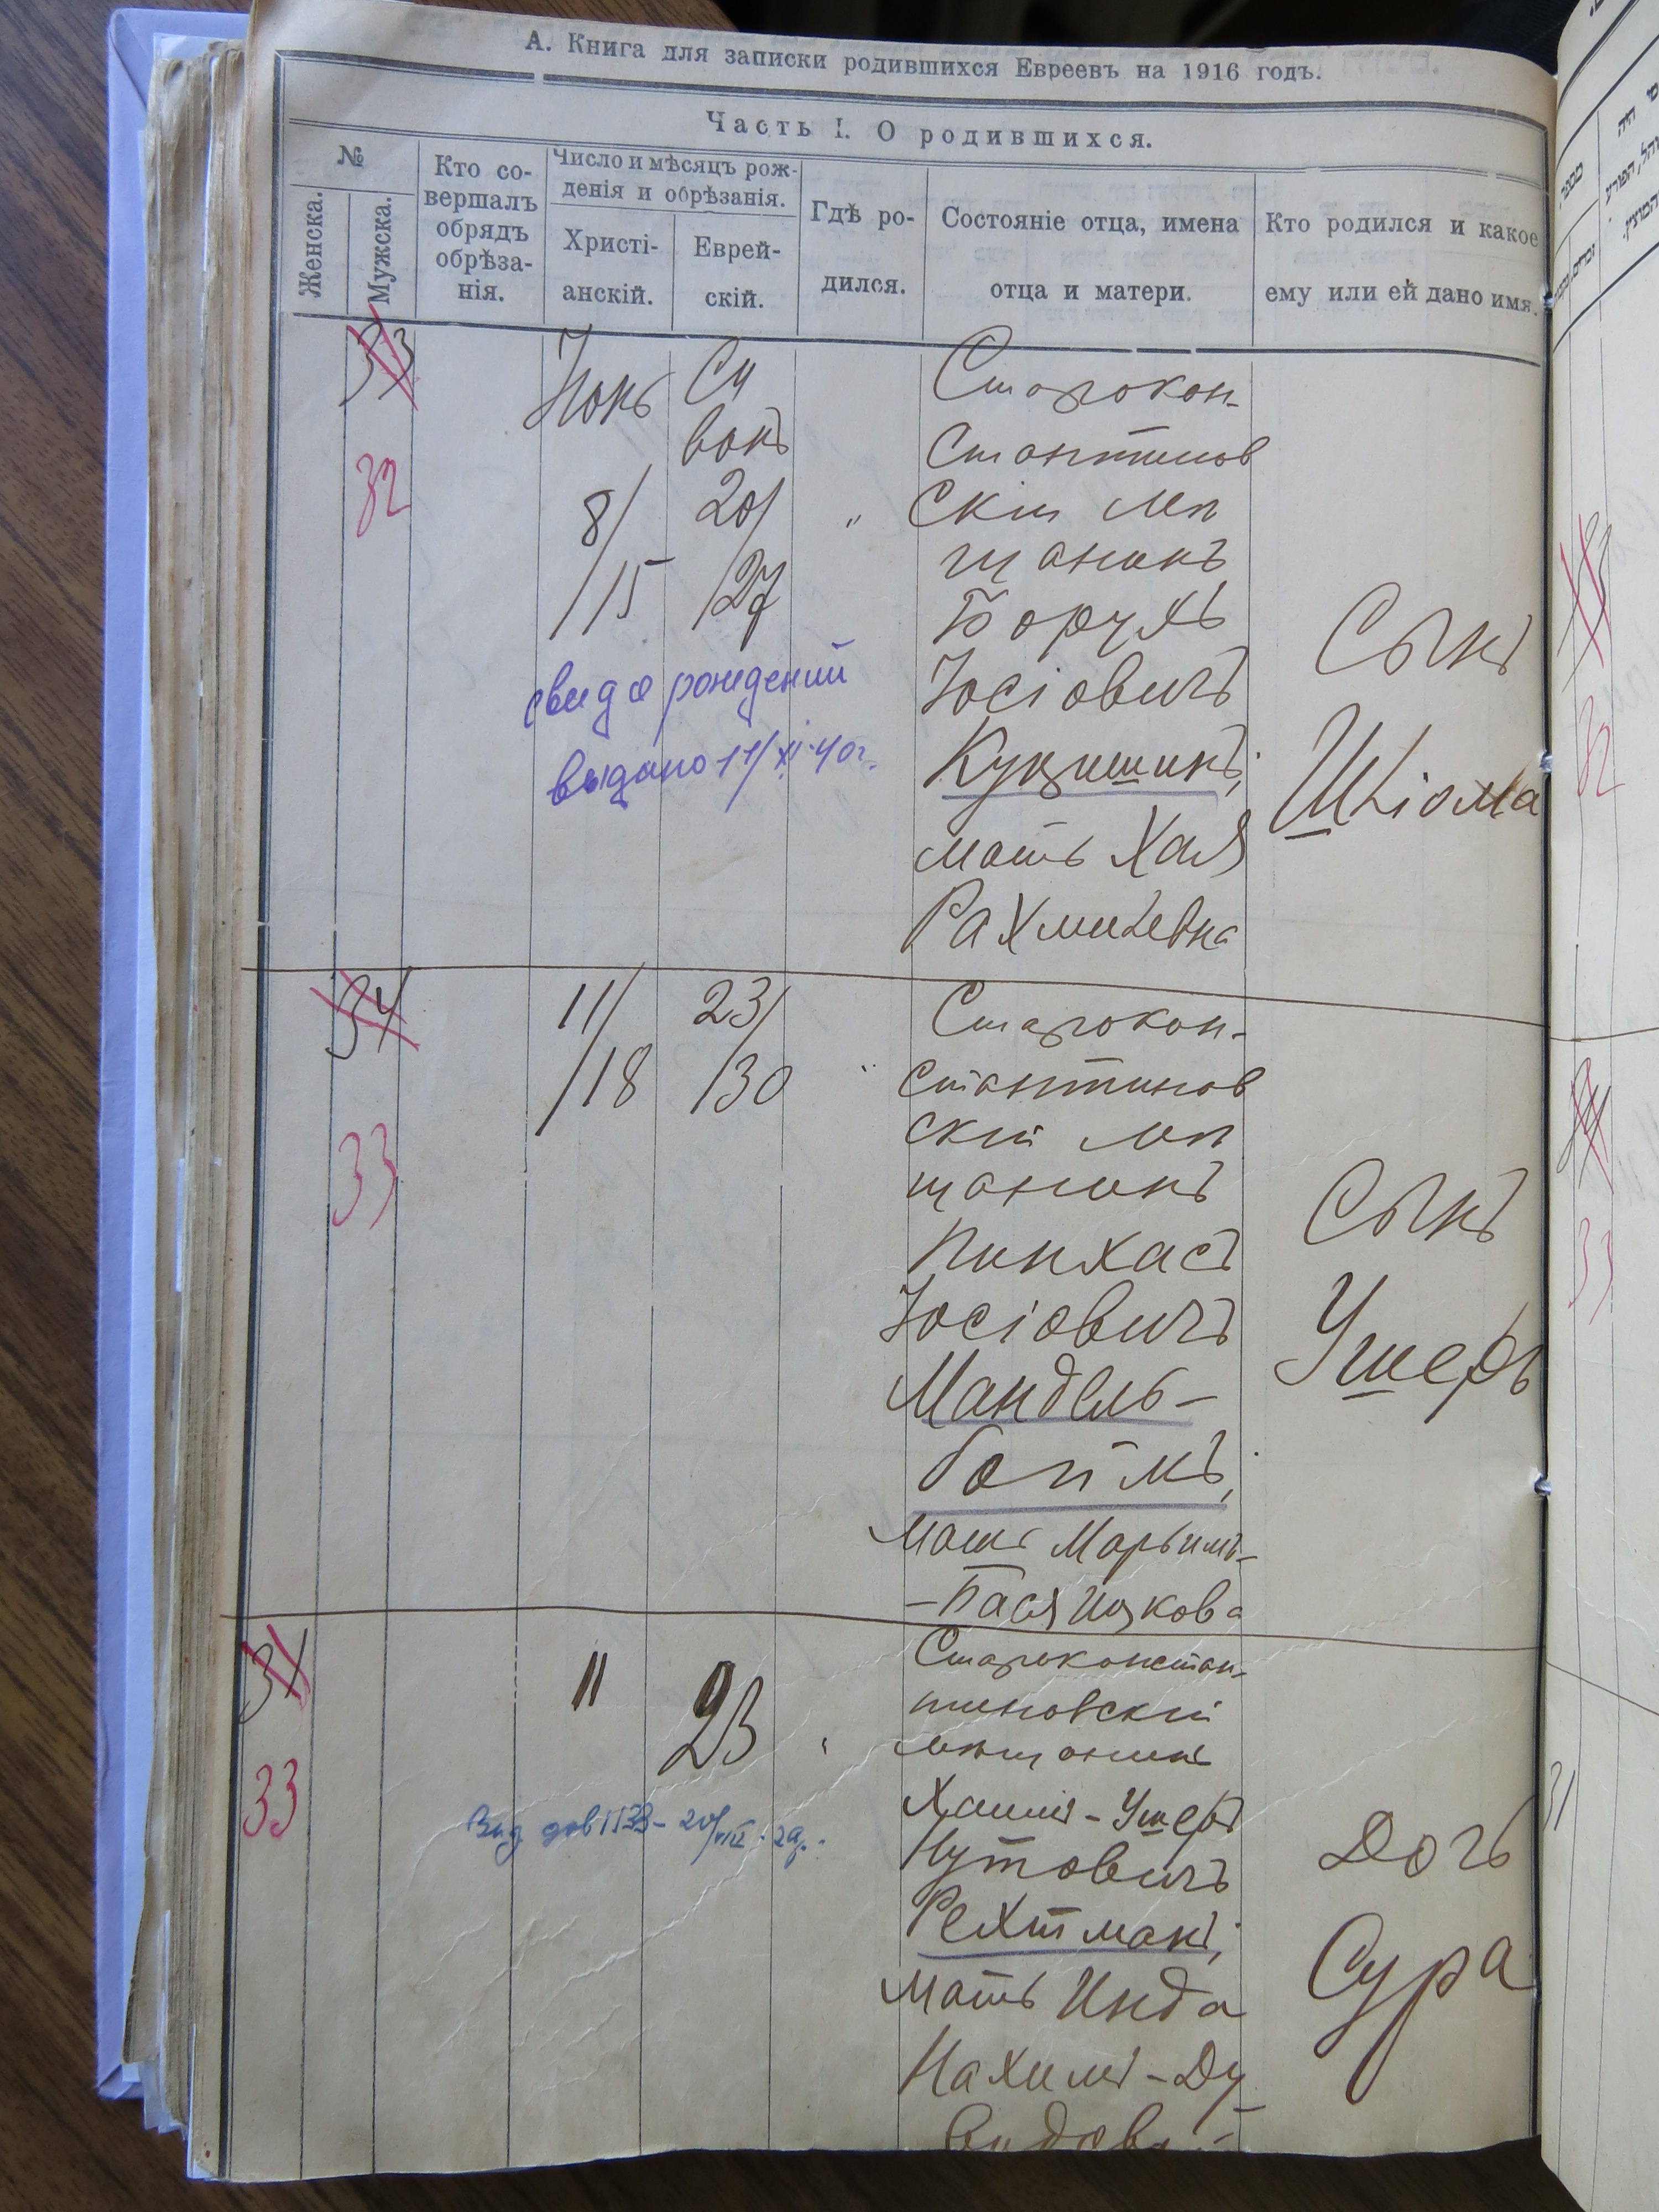 А. Книга для записки родившихся Евреевъ на 1916 годъ.
Часть I. О родившихся.
№
Женска.
Мужска.
Кто со-
вершалъ
обрядъ
обрѣза-
нія.
Число и мѣсяцъ рож-
денія и обрѣзанія.
Христі-
анскій.
Еврей-
скій.
Гдѣ ро-
дился.
Состояніе отца, имена
отца и матери.
Кто родился и какое
ему или ей дано имя.
33
32
Іюнь
8/
/15
Си
ванъ
20/
/27
"
Старокон-
стантинов
скій мѣ
щанинъ
Борухъ
Іосіовичъ
Куцишинъ,
мать Хая
Рахмилевна
Сынъ
Шліома
свид о рождений
выдано 11/XI-40г.
34
33
11/
/18
23/
/30
"
Старокон-
стантинов
скій мѣ
щанинъ
Пинхасъ
Іосіовичъ
Мандель-
боймъ,
мать Марьимъ-
-Бася Ицкова
Сынъ
Ушеръ
31
33
11
23
Староконстан-
тиновскій
мѣщанинъ
Хаимъ-Ушеръ
Нутовичъ
Рехтманъ,
мать Инда
Нахимъ-Ду
Дочь
Сура